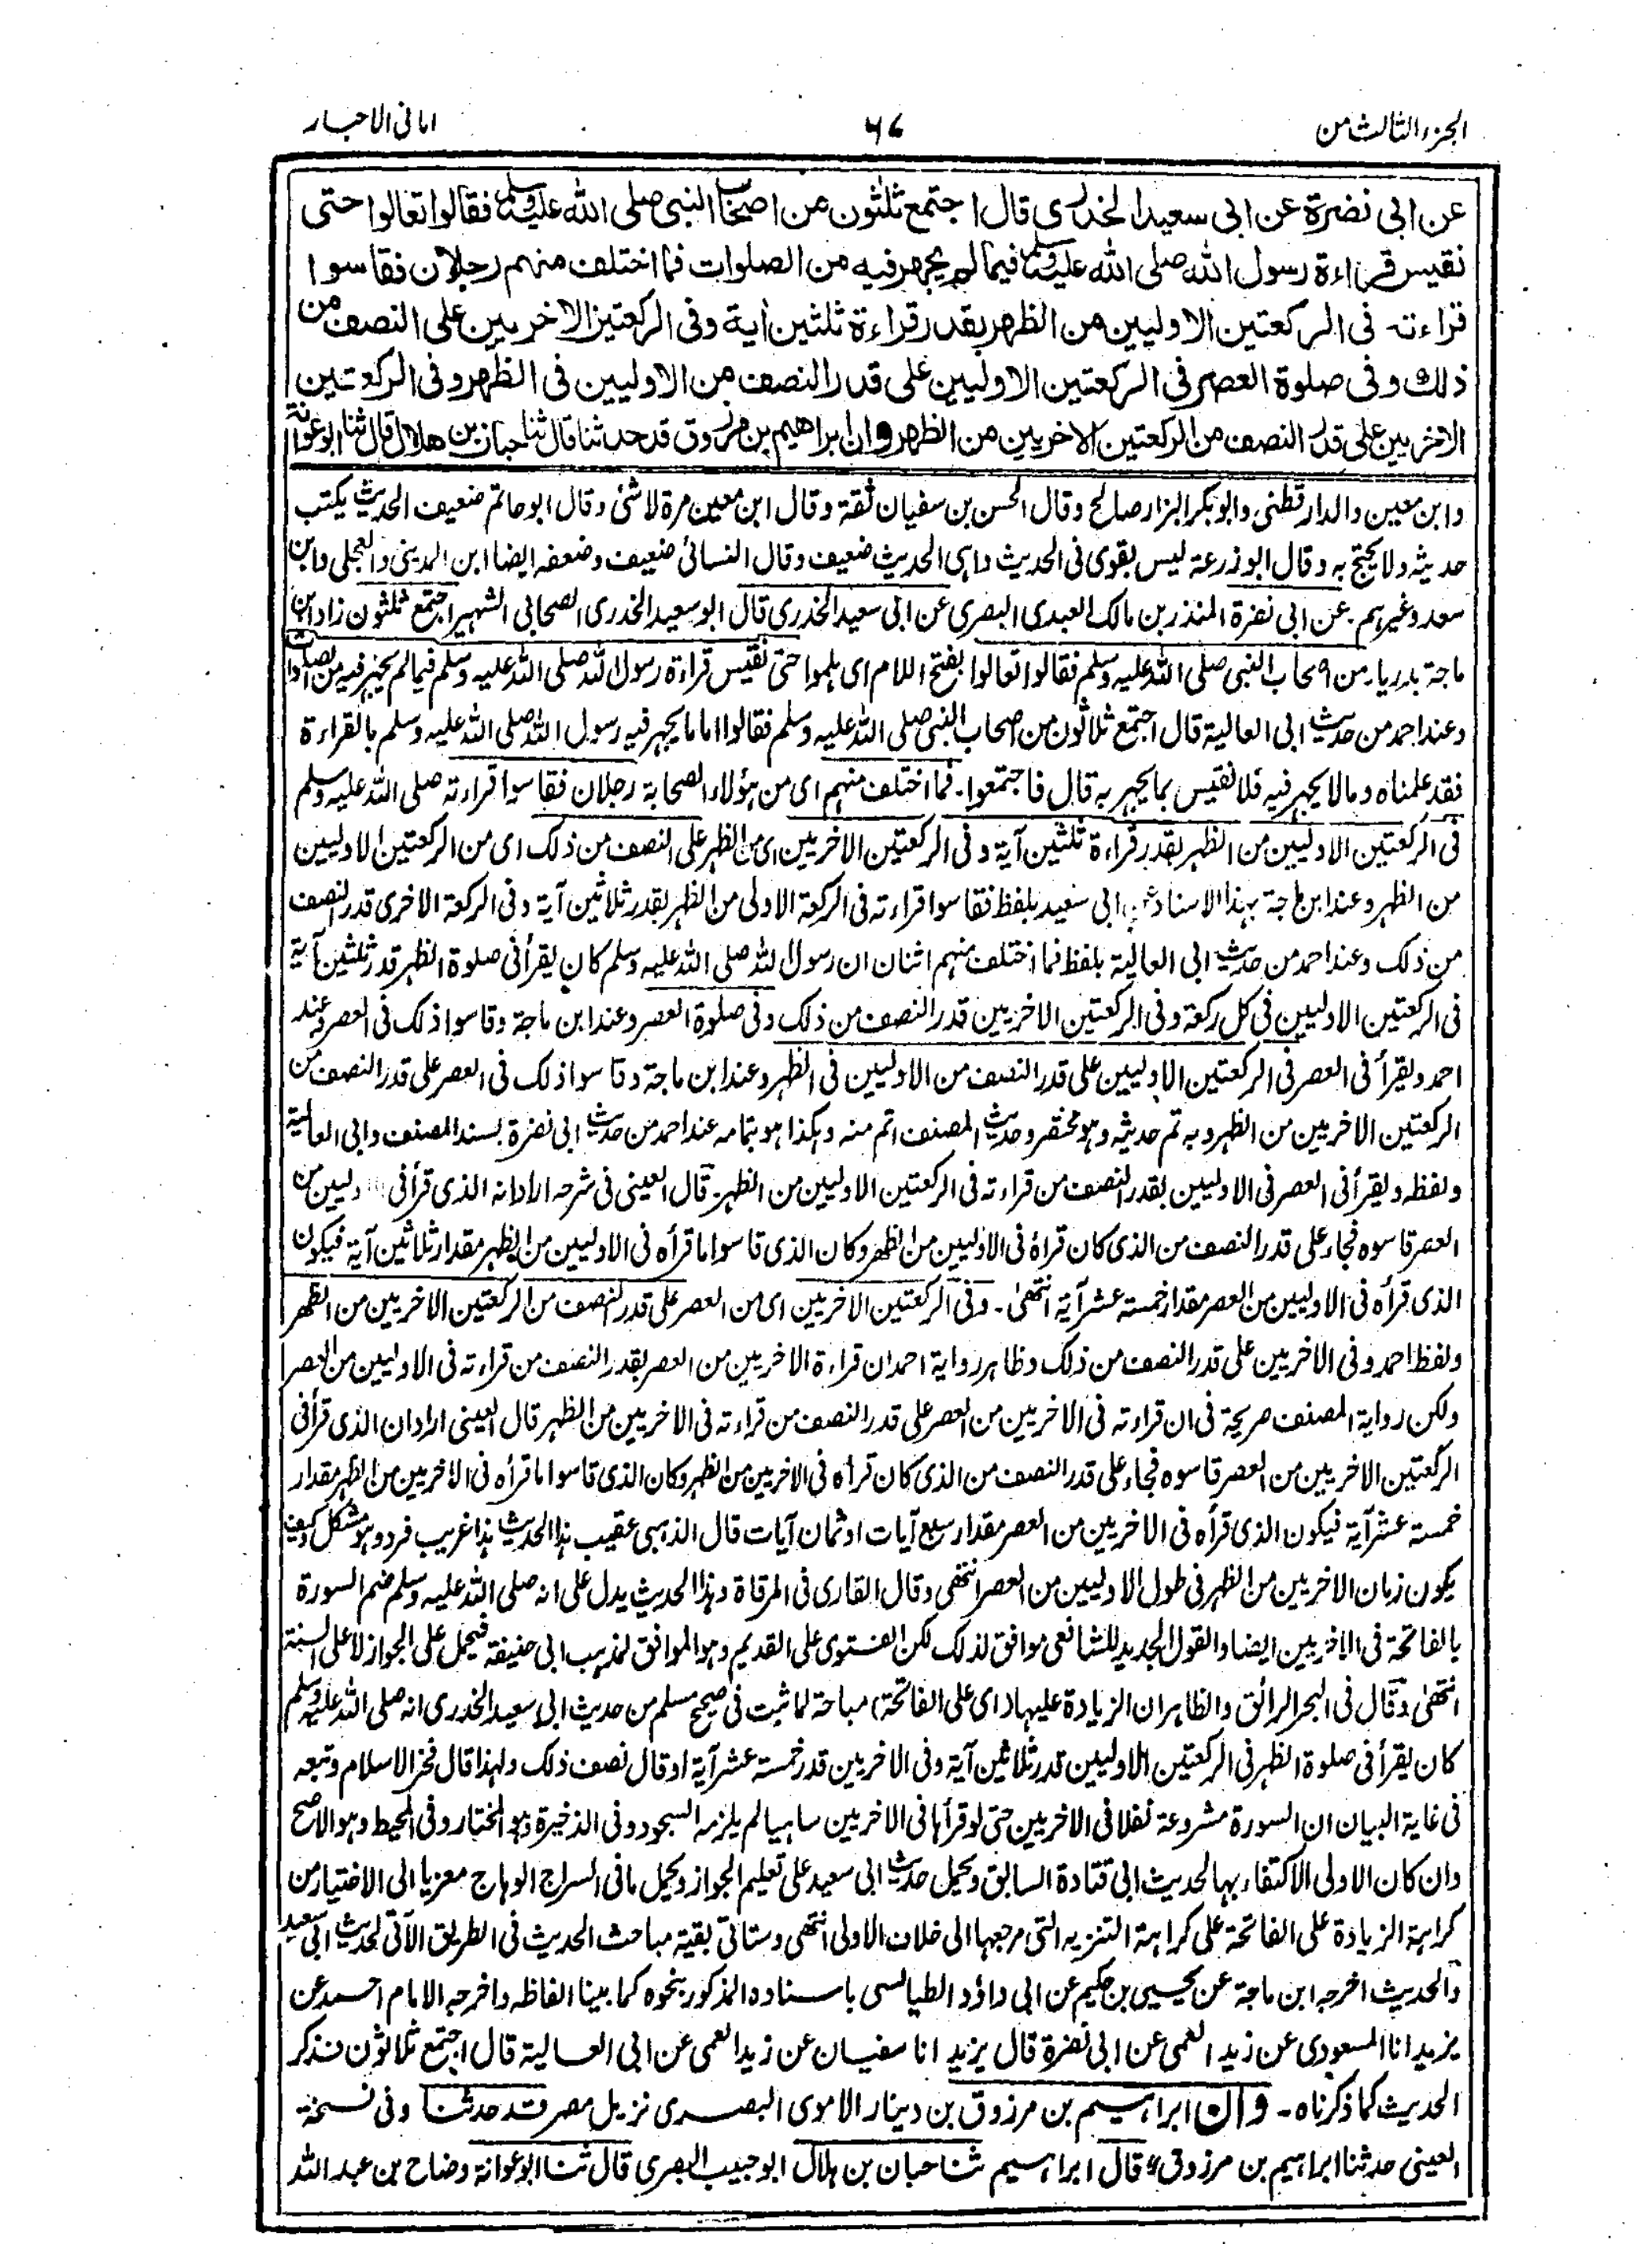 الجزء الثالث من
٧٦
امانی الاحبار
عن ابی نضرة عن ابی سعید الخدری قال اجتمع ثلثون من اصحاب النبی صلی الله علیه وسلم فقالوا تعالوا حتی
نقیس قراءة رسول الله صلی الله علیه وسلم فیما لم یجهر فیه من الصلوات فما اختلف منهم رجلان فقاسوا
قراءته فی الرکعتین الاولیین من الظهر بقدر قراءة ثلثین اٰیة وفی الرکعتین الاخریین علی النصف من
ذلك وفی صلوة العصر فی الرکعتین الاولیین علی قدر النصف من الاولیین فی الظهر وفی الرکعتین
الاخریین علی قدر النصف من الرکعتین الاخریین من الظهر وان ابراهیم بن مرزوق قد حدثنا قال ثنا حبان بن هلال قال ثنا ابو عوانة
وابن معین والدارقطنی وابوبکر البزار صالح وقال الحسن بن سفیان ثقة وقال ابن معین مرة لاشئ وقال ابوحاتم ضعیف الحدیث یکتب
حدیثه ولا یحتج به وقال ابو زرعة لیس بقوی فی الحدیث واہی الحدیث ضعیف وقال النسائی ضعیف وضعفه ایضا ابن المدینی والعجلی وابن
سعد وغیرہم. عن ابی نضرة المنذر بن مالک العبدی البصری عن ابی سعید الخدری قال ابو سعید الخدری الصحابی الشهیر اجتمع ثلثون زاد ابن
ماجة بدریا من اصحاب النبی صلی اللہ علیه وسلم فقالوا تعالوا بفتح اللام ای ہلموا حتی نقیس قراءة رسول اللہ صلی اللہ علیه وسلم فیما لم یجہر فیه من الصلوات
وعند احمد من حدیث ابی العالیة قال اجتمع ثلاثون من اصحاب النبی صلی اللہ علیه وسلم فقالوا اما ما یجہر فیه رسول اللہ صلی اللہ علیه وسلم بالقراءة
فقد علمناه وما لا یجہر فیه فلا نقیس بما یجہر به قال فاجتمعوا. فما اختلف منہم ای من ہؤلاء الصحابة رجلان فقاسوا قراءته صلی اللہ علیه وسلم
فی الرکعتین الاولیین من الظہر بقدر قراءة ثلثین آیة وفی الرکعتین الاخریین ای من الظہر علی النصف من ذلک ای من الرکعتین الاولیین
من الظہر وعند ابن ماجة بہذا الاسناد عن ابی سعید بلفظ فقاسوا قراءته فی الرکعة الاولی من الظہر بقدر ثلاثین آیة وفی الرکعة الاخری قدر النصف
من ذلک وعند احمد من حدیث ابی العالیة بلفظ فما اختلف منہم اثنان ان رسول اللہ صلی اللہ علیه وسلم کان یقرأ فی صلوة الظہر قدر ثلثین آیة
فی الرکعتین الاولیین فی کل رکعة وفی الرکعتین الاخریین قدر النصف من ذلک وفی صلوة العصر وعند ابن ماجة وقاسوا ذلک فی العصر وعند
احمد ویقرأ فی العصر فی الرکعتین الاولیین علی قدر النصف من الاولیین فی الظہر وعند ابن ماجة وقاسوا ذلک فی العصر علی قدر النصف من
الرکعتین الاخریین من الظہر وبه تم حدیثه وہو مختصر وحدیث المصنف اتم منه وہکذا ہو بتمامه عند احمد من حدیث ابی نضرة بسند المصنف وابی العالیة
ولفظه ویقرأ فی العصر فی الاولیین بقدر النصف من قراءته فی الرکعتین الاولیین من الظہر. قال العینی فی شرحه اراد انه الذی قرأ فی من
العصر قاسوه فجاء علی قدر النصف من الذی کان قرأه فی الاولیین من الظہر وکان الذی قاسوا ما قرأه فی الاولیین من الظہر مقدار ثلاثین آیة فیکون
الذی قرأه فی الاولیین من العصر مقدار خمسة عشر آیة انتهیٰ۔ وفی الرکعتین الاخریین ای من العصر علی قدر النصف من الرکعتین الاخریین من الظہر
ولفظ احمد وفی الاخریین علی قدر النصف من ذلک وظاہر روایة احمد ان قراءة الاخریین من العصر بقدر النصف من قراءته فی الاولیین من العصر
ولکن روایة المصنف صریحة فی ان قراءته فی الاخریین من العصر علی قدر النصف من قراءته فی الاخریین من الظہر قال العینی اراد ان الذی قرأ فی
الرکعتین الاخریین من العصر قاسوه فجاء علی قدر النصف من الذی کان قرأه فی الاخریین من الظہر وکان الذی قاسوا ما قرأه فی الاخریین من الظہر مقدار
خمسة عشر آیة فیکون الذی قرأه فی الاخریین من العصر مقدار سبع آیات او ثمان آیات قال الذہبی عقیب ہذا الحدیث ہذا غریب فرد وہو مشکل وکیف
یکون زمان الاخریین من الظہر فی طول الاولیین من العصر انتہی وقال القاری فی المرقاة وہذا الحدیث یدل علی انه صلی اللہ علیه وسلم ضم السورة
بالفاتحة فی الاخریین ایضا والقول الجدید للشافعی موافق لذلک لکن الفتوی علی القدیم وہو الموافق لمذہب ابی حنیفة فیحمل علی الجواز لا علی السنة
انتهیٰ وقال فی البحر الرائق والظاہر ان الزیادة علیہا (ای علی الفاتحة) مباحة لما ثبت فی صحیح مسلم من حدیث ابی سعید الخدری انه صلی اللہ علیه وسلم
کان یقرأ فی صلوة الظہر فی الرکعتین الاولیین قدر ثلاثین آیة وفی الاخریین قدر خمسة عشر آیة او قال نصف ذلک ولہذا قال فخر الاسلام وتبعه
فی غایة البیان ان السورة مشروعة نفلا فی الاخریین حتی لو قرأہا فی الاخریین ساہیا لم یلزمه السجود وفی الذخیرة وہو المختار وفی المحیط وہو الاصح
وان کان الاولی الاکتفاء بہا لحدیث ابی قتادة السابق ویحمل حدیث ابی سعید علی تعلیم الجواز ویحمل ما فی السراج الوہاج معزیا الی الاختیار من
کراہة الزیادة علی الفاتحة علی کراہة التنزیه التی مرجعہا الی خلاف الاولی انتهی وستاتی بقیة مباحث الحدیث فی الطریق الآتی لحدیث ابی سعید
والحدیث اخرجه ابن ماجة عن یحیی بن حکیم عن ابی داؤد الطیالسی باسناده المذکور بنحوه کما بینا الفاظه واخرجه الامام احمد عن
یزید انا المسعودی عن زید العمی عن ابی نضرة قال یزید انا سفیان عن زید العمی عن ابی العالیة قال اجتمع ثلاثون فذکر
الحدیث کما ذکرناه۔ وان ابراہیم بن مرزوق بن دینار الاموی البصری نزیل مصر قد حدثنا وفی نسخة
العینی حدثنا ابراہیم بن مرزوق قال ابراہیم ثنا حبان بن ہلال ابو حبیب البصری قال ثنا ابو عوانة وضاح بن عبد اللہ